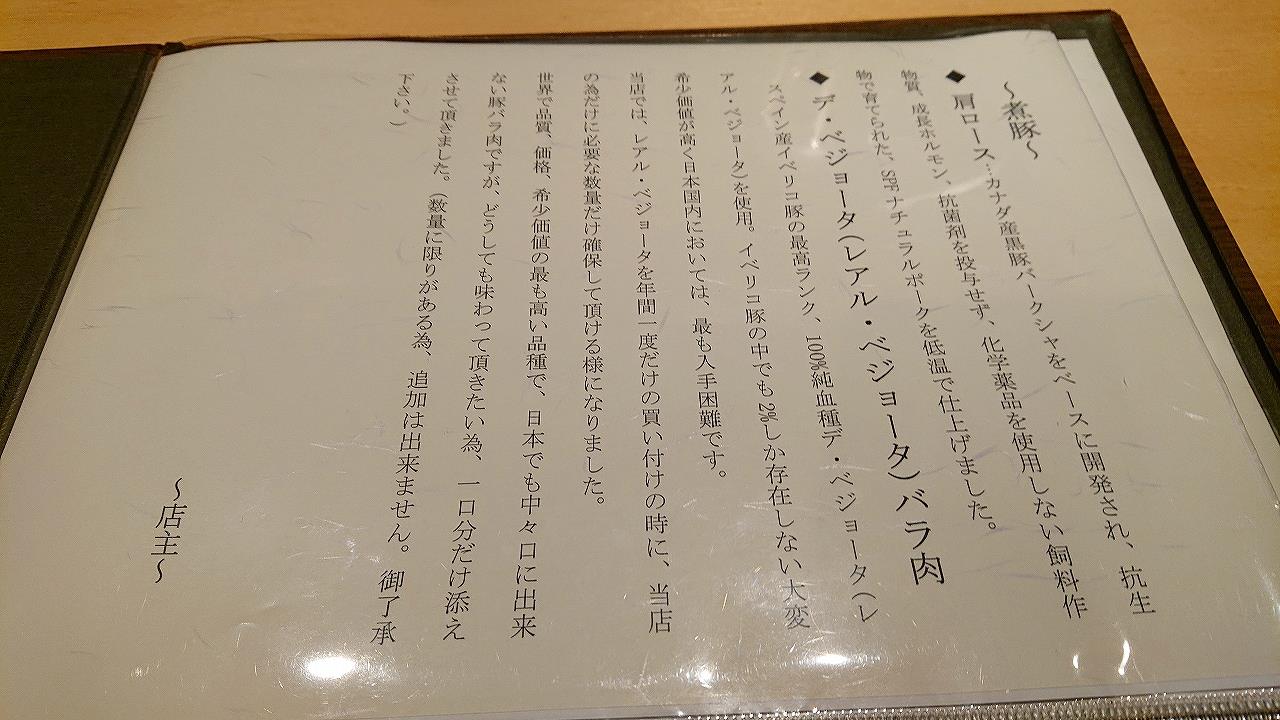 ～煮豚～
◆ 肩ロース…カナダ産黒豚バークシャをベースに開発され、抗生
物質、成長ホルモン、抗菌剤を投与せず、化学薬品を使用しない飼料作
物で育てられた、SPFナチュラルポークを低温で仕上げました。
◆ デ・ベジョータ(レアル・ベジョータ)バラ肉
スペイン産イベリコ豚の最高ランク、100%純血種デ・ベジョータ(レ
アル・ベジョータ)を使用。イベリコ豚の中でも2%しか存在しない大変
希少価値が高く日本国内においては、最も入手困難です。
当店では、レアル・ベジョータを年間一度だけの買い付けの時に、当店
の為だけに必要な数量だけ確保して頂ける様になりました。
世界で品質、価格、希少価値の最も高い品種で、日本でも中々口に出来
ない豚バラ肉ですが、どうしても味わって頂きたい為、一口分だけ添え
させて頂きました。(数量に限りがある為、追加は出来ません。御了承
下さい。)
～店主～